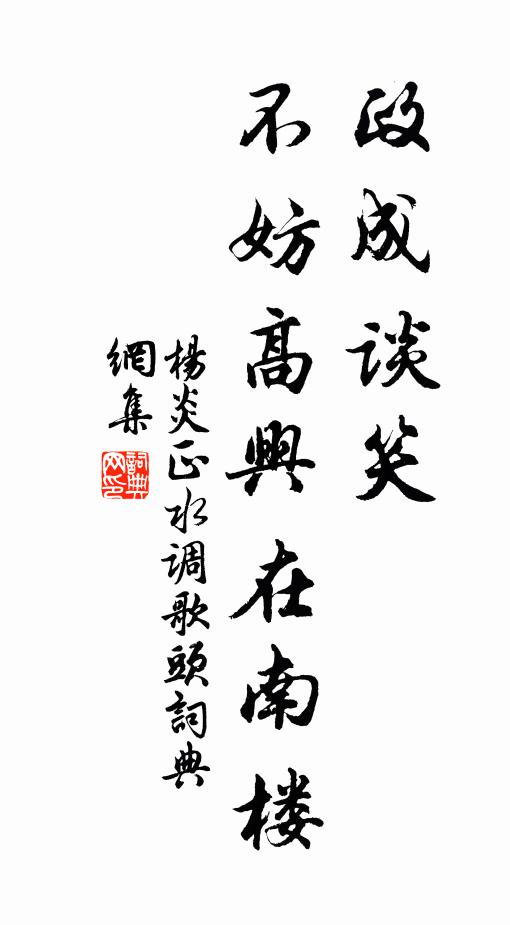 政成谈笑
不妨高興在南楼
楊炎正水调歌頭詞典
網集
詞典网印